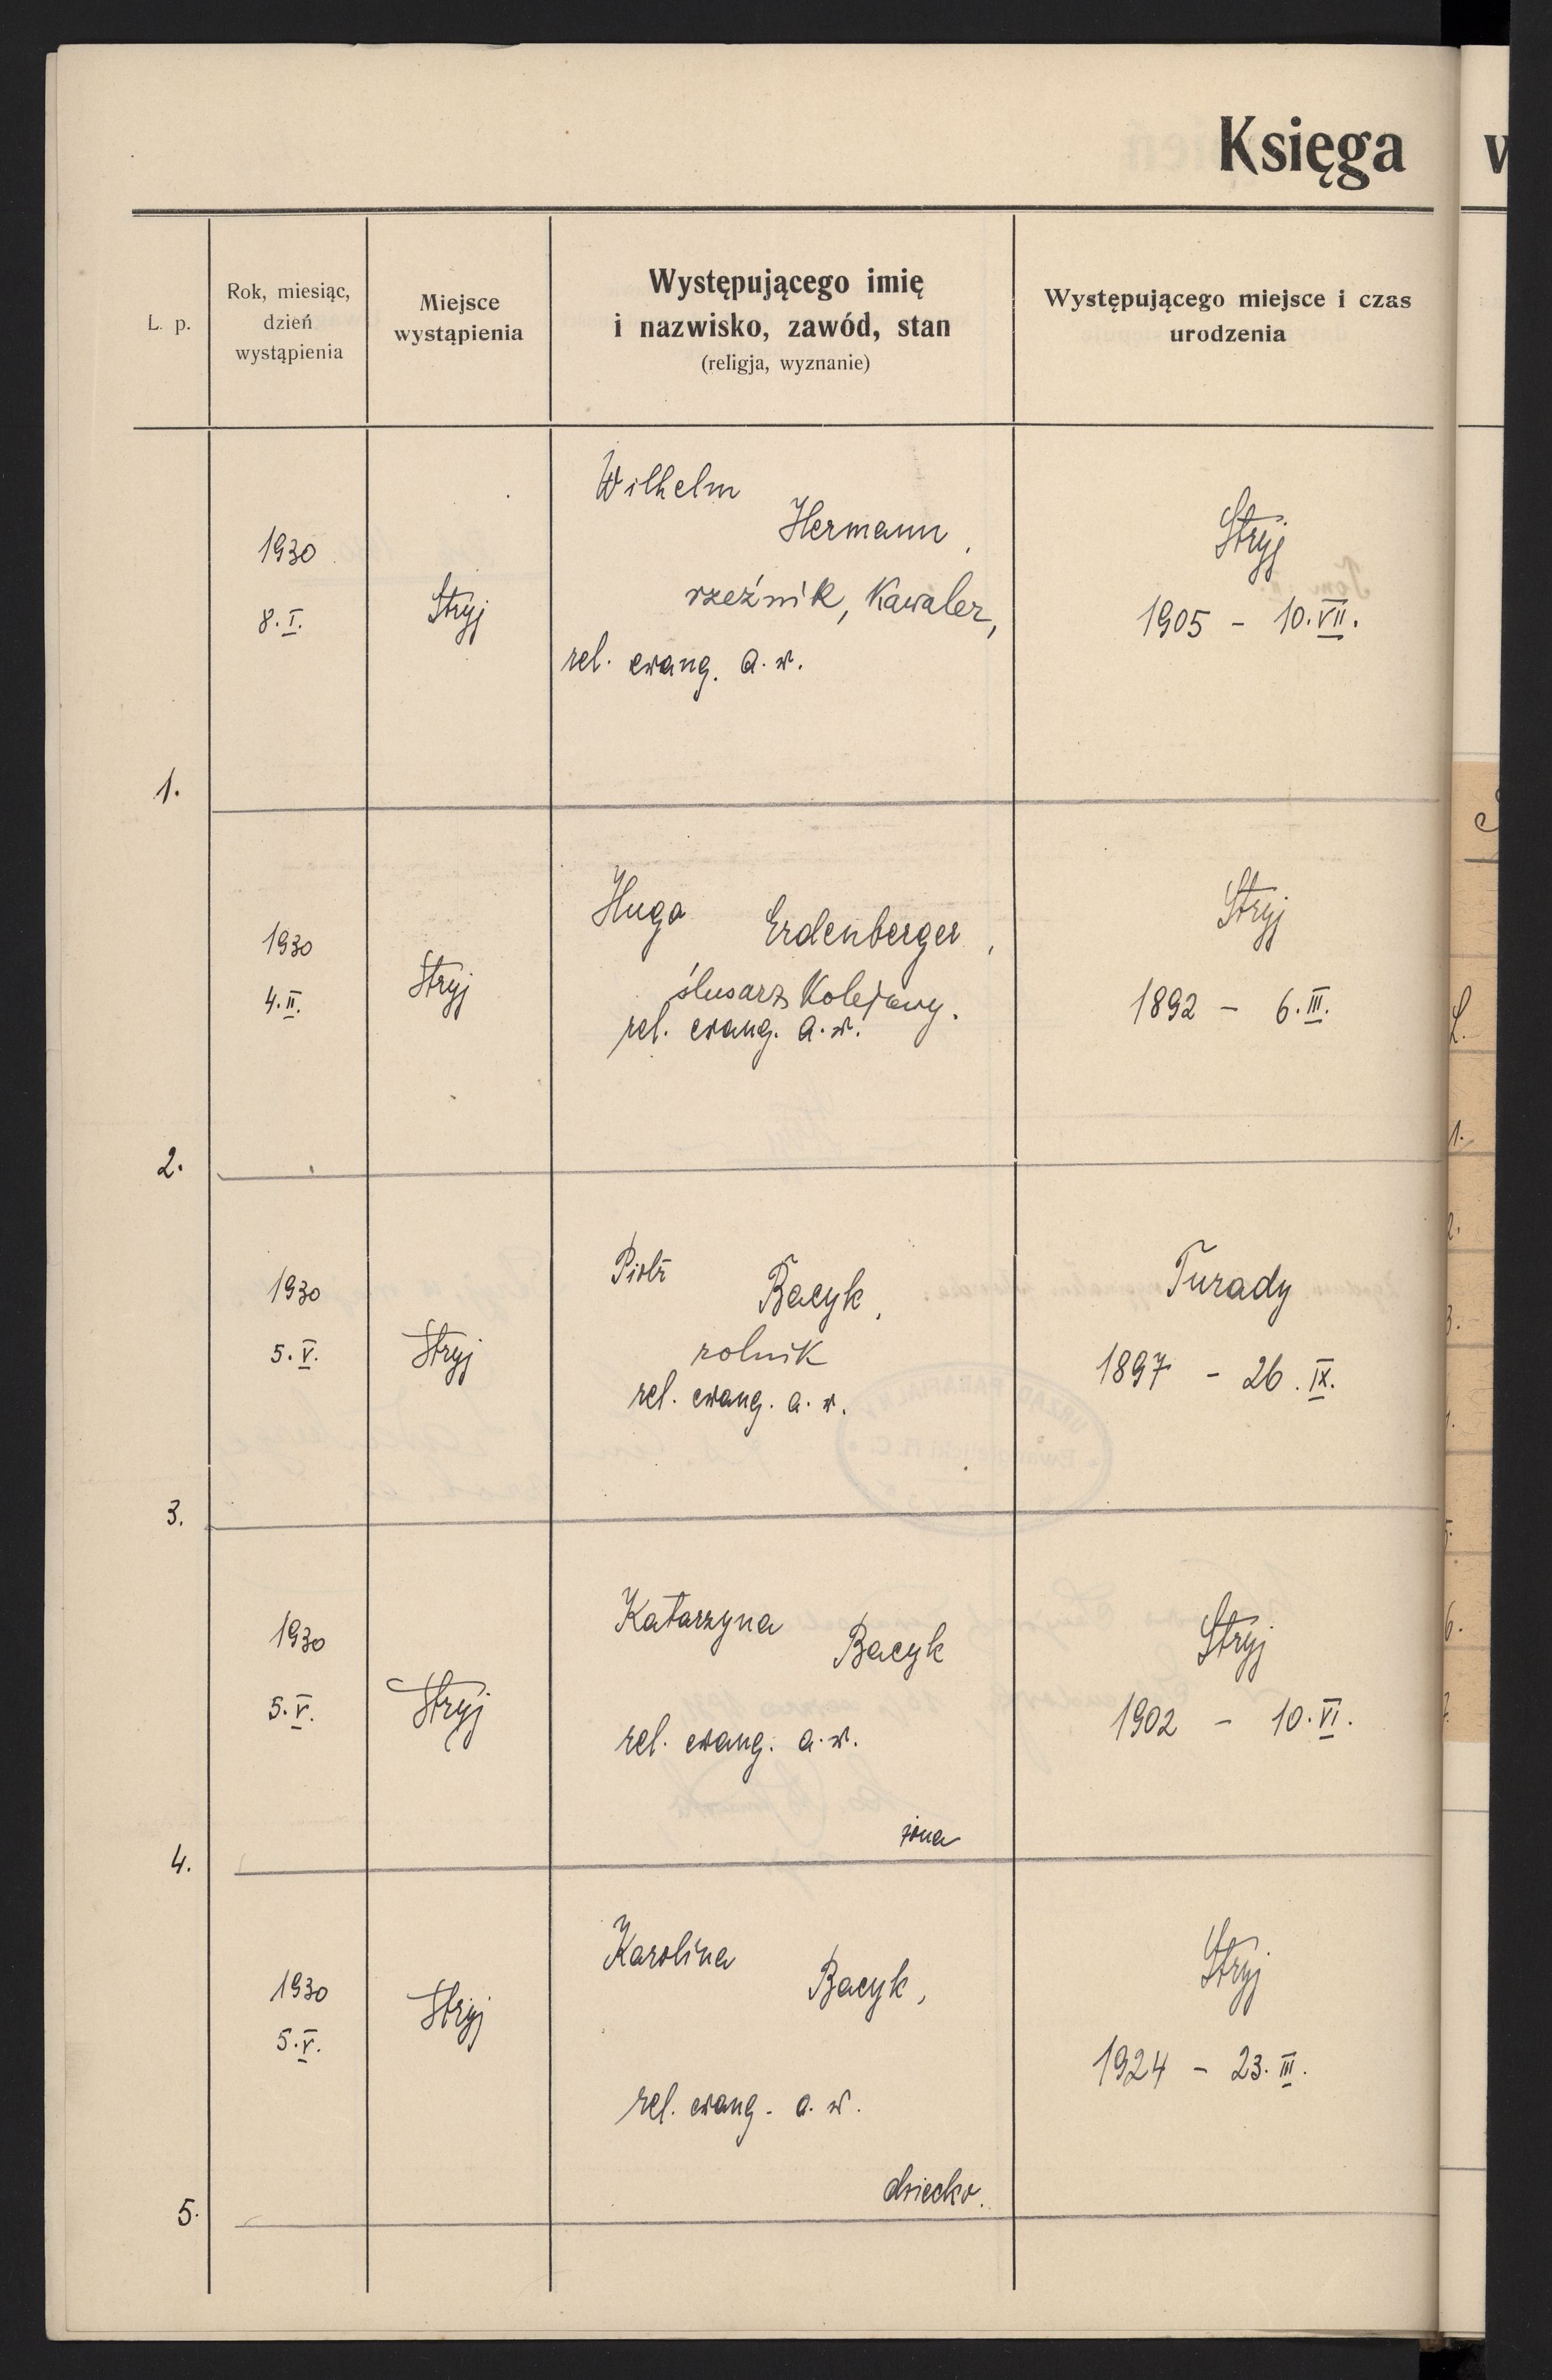 Księga
L. p.
Rok, miesiąc,
dzień
wystąpienia
Miejsce
wystąpienia
Występującego imię
i nazwisko, zawód, stan
(religja, wyznanie)
Występującego miejsce i czas
urodzenia
1.
1930
8. I.
Stryj
Wilhelm
Hermann,
rzeźnik, Kawaler,
rel. ewang. a. w.
Stryj
1905 - 10. VII.
2.
1930
4. II.
Stryj
Hugo Erdenberger,
ślusarz Kolejowy.
rel. ewang. a. w.
Stryj
1892 - 6. III.
3.
1930
5. V.
Stryj
Piotr
Bacyk,
rolnik
rel. ewang. a. w.
Turady
1897 - 26. IX.
4.
1930
5. V.
Stryj
Katarzyna
Bacyk
rel. ewang. a. w.
żona
Stryj
1902 - 10. VI.
5.
1930
5. V.
Stryj
Karolina
Bacyk,
rel. ewang. a. w.
dziecko.
Stryj
1924 - 23. III.